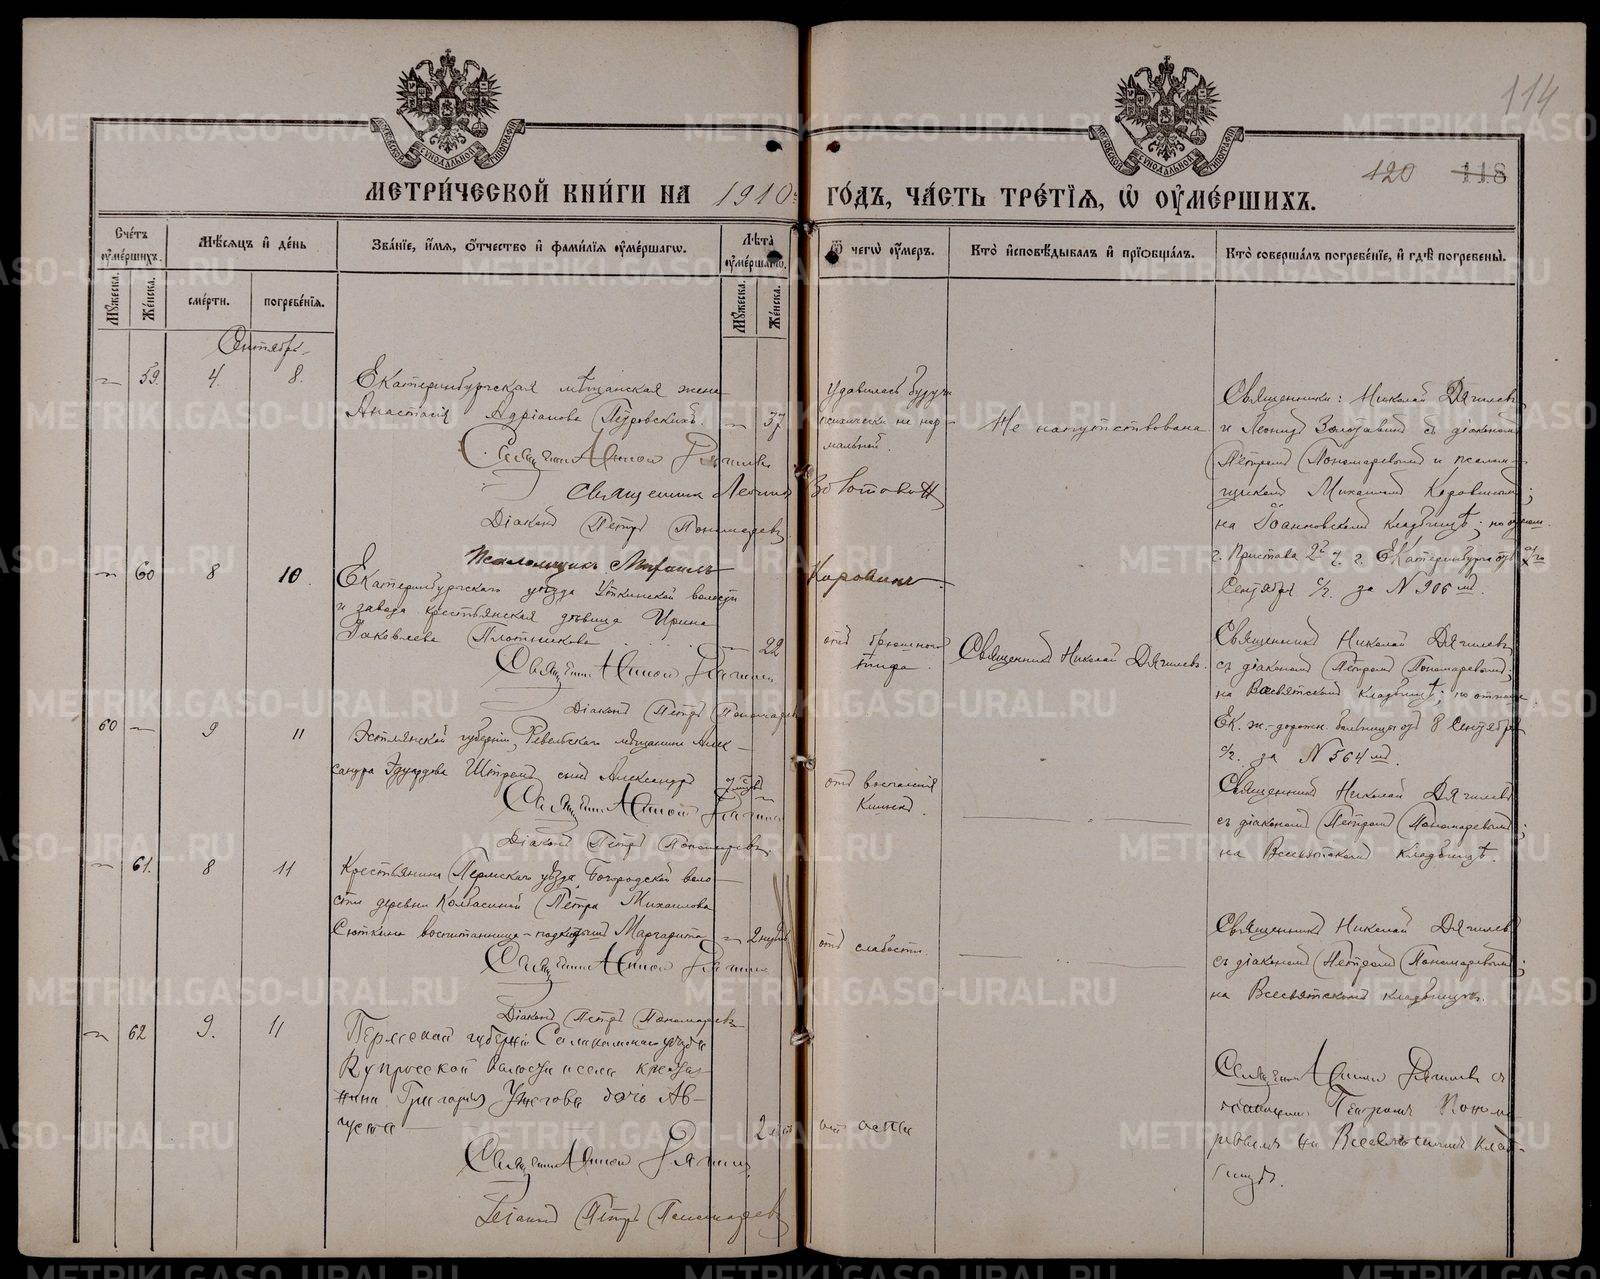 114
120 118
МОСКОВСКОЙ СѴНОДАЛЬНОЙ ТИПОГРАФІИ
МОСКОВСКОЙ СѴНОДАЛЬНОЙ ТИПОГРАФІИ
МЕТРИ́ЧЕСКОЙ КНИ́ГИ НА 1910 ГО́ДЪ, ЧА́СТЬ ТРЕ́ТІЯ, Ѡ ОУМЕ́РШИХЪ.
Сче́тъ оуме́ршихъ.
Мꙋ́жеска.
Же́нска.
Мѣ́сяцъ и де́нь
сме́рти.
погребе́нія.
Зва́ніе, и́мя, ѻ́тчество и фами́лія оуме́ршагѡ.
Лѣ́та оуме́ршагѡ.
Мꙋ́жеска.
Же́нска.
Ѿ чегѡ̀ оу́меръ.
Кто̀ исповѣ́дывалъ и пріѻбща́лъ.
Кто̀ соверша́лъ погребе́ніе, и гдѣ̀ погребены̀.
Сентябрь
59. 4. 8.
Екатеринбургская мѣщанская жена
Анастасія Адріанова Петровскихъ. 57
Священникъ
Священникъ Леонид Золотовин
Діаконъ Петръ Пономаревъ
Псаломщикъ Михаилъ Коровинъ
Удавилась будучи
психически не нор-
мальной.
Не напутствована
Священники: Николай Дягилевъ
и Леонидъ съ діакономъ
Петромъ Пономаревымъ и псалом-
щикомъ Михаиломъ Коровинымъ;
на Іоанновскомъ кладбищѣ;
г. Пристава 2й ч. г. Екатеринбурга отъ
Сентября с/г. за № 906 мъ.
60 8 10.
Екатеринбургскаго уѣзда Уткинской волости
и завода крестьянская дѣвица Ирина
Іаковлева Плотникова 22
Священникъ
Діаконъ Петръ Пономаревъ
отъ брюшного
тифа.
Священникъ Николай Дягилевъ.
Священникъ Николай Дягилевъ
съ діакономъ Петромъ Пономаревымъ;
на Всесвятскомъ кладбищѣ; по отнош.
Ек. ж.-дорожн. больницы отъ 8 Сентября
с/г. за № 564 мъ.
60 9 11
Эстлянской губерніи, Ревельскаго мѣщанина Алек-
сандра Эдуардова Штремъ сынъ Александръ
Священникъ
Діаконъ Петръ Пономаревъ.
отъ воспаленія
кишекъ.
Священникъ Николай Дягилевъ
съ діакономъ Петромъ Пономаревымъ;
на Всесвятскомъ кладбищѣ.
61. 8 11
Крестьянина Пермскаго уѣзда, Богородской воло-
сти деревни Колбасиной Петра Михаилова
Сюткина воспитанница-подкидышъ Маргарита 2 нед.
Священникъ
Діаконъ Петръ Пономаревъ
отъ слабости.
Священникъ Николай Дягилевъ
съ діакономъ Петромъ Пономаревымъ;
на Всесвятскомъ кладбищѣ.
62 9. 11
Пермской губерніи Соликамскаго уѣзда
Купросской волости и села крестья-
нина Григорія Ужегова дочь Ав-
густа 2
Священникъ
Діаконъ Петръ Пономаревъ
отъ оспы
Священникъ
Петромъ Понома-
ревымъ на Всесвятскомъ клад-
бищѣ.
METRIKI.GASO-URAL.RU